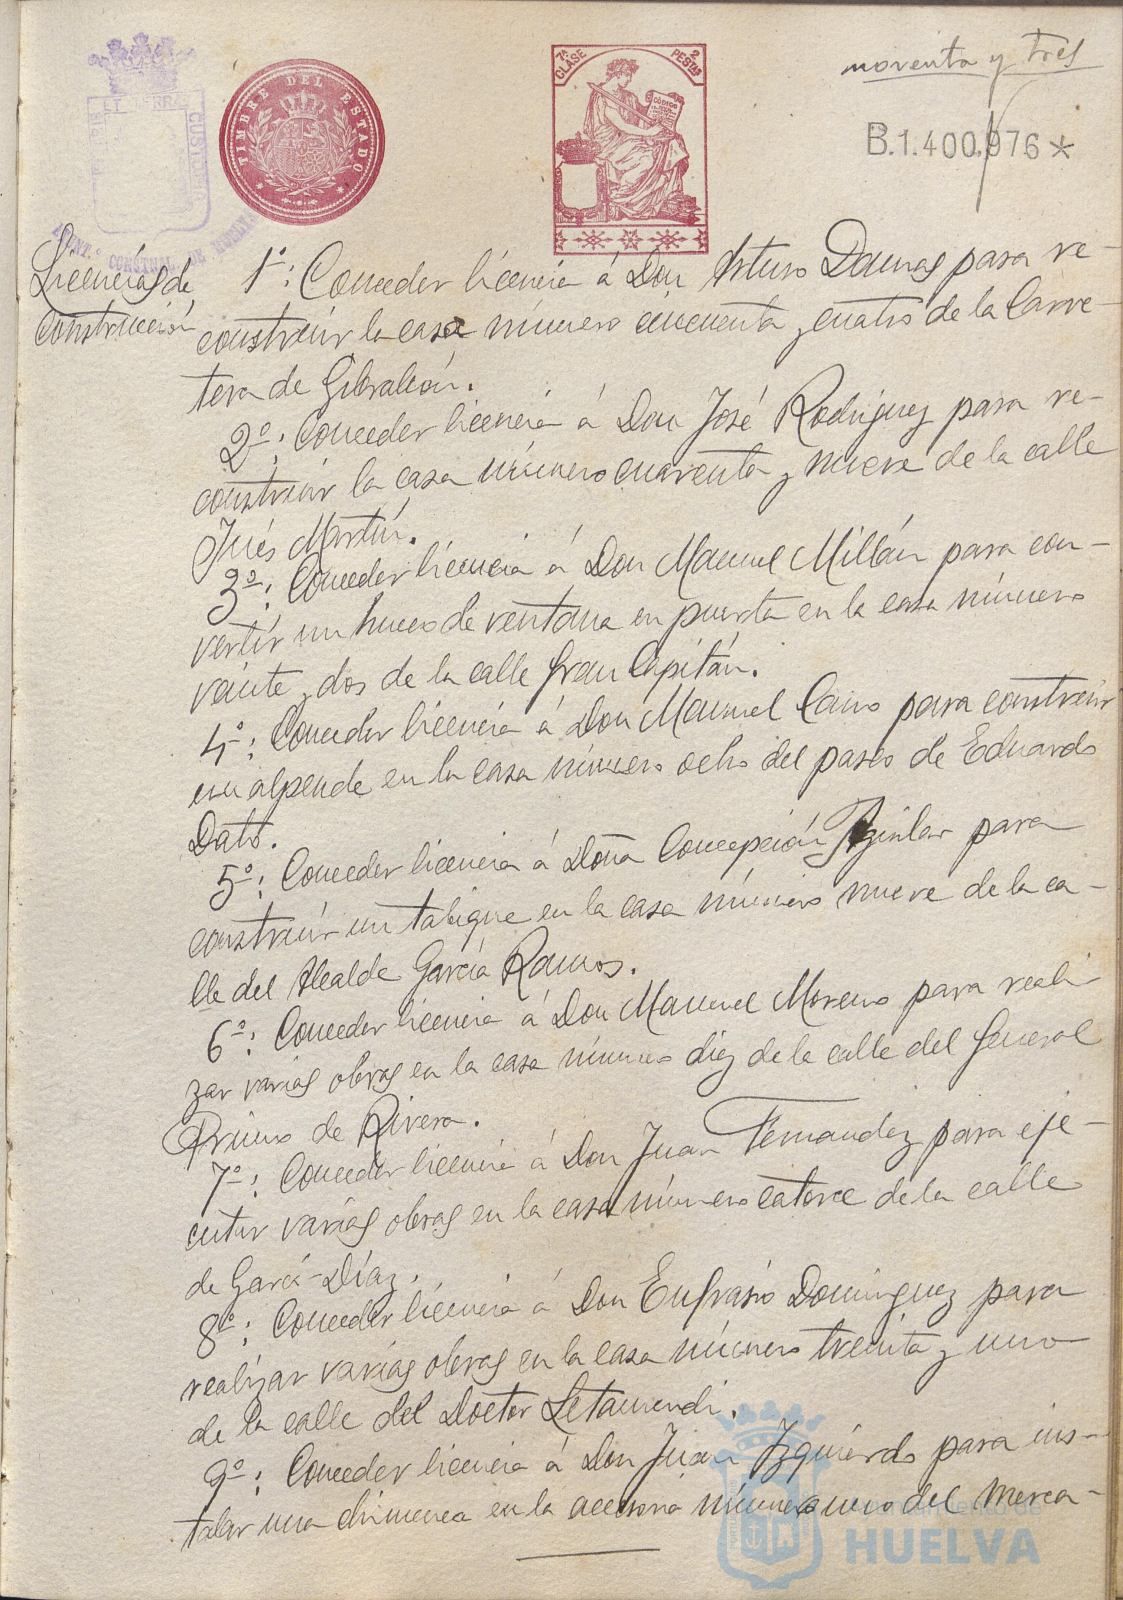 noventa y tres
TIMBRE DEL ESTADO
7ª CLASE
2 PESTAS
CÓDIGO
B.1.400.976*
AYUNT.º CONSTNAL DE HUELVA
Licencias de
construcción
1º: Conceder licencia á Don Arturo Daunas para re-
construir la casa número cincuenta y cuatro de la Carre-
tera de Gibraleón.
2º: Conceder licencia á Don José Rodriguez para re-
construir la casa número cuarenta y nueve de la calle
Inés Martín.
3º: Conceder licencia á Don Manuel Millán para con-
vertir un hueco de ventana en puerta en la casa número
veinte y dos de la calle Gran Capitán.
4º: Conceder licencia á Don Manuel Cano para construir
un alpende en la casa número ocho del paseo de Eduardo
Dato.
5º: Conceder licencia á Doña Concepción Aguilar para
construir un tabique en la casa número nueve de la ca-
lle del Alcalde García Ramos.
6º: Conceder licencia á Don Manuel Moreno para reali-
zar varias obras en la casa número diez de la calle del General
Primo de Rivera.
7º: Conceder licencia á Don Juan Fernandez para eje-
cutar varias obras en la casa número catorce de la calle
de Garcí-Díaz.
8º: Conceder licencia á Don Eufrasio Dominguez para
realizar varias obras en la casa número treinta y uno
de la calle del Doctor Letamendi.
9º: Conceder licencia á Don Juan Izquierdo para ins-
talar una chimenea en la accesoria número uno del Merca-
Ayuntamiento de
HUELVA